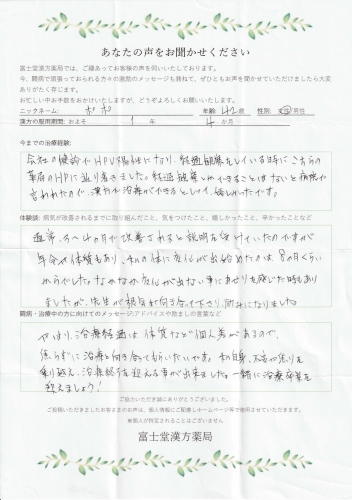 あなたの声をお聞かせください
富士堂漢方薬局では、ご縁あってお客様の声を伺いしております。
今、闘病で頑張っておられる方々の激励のメッセージも兼ねて、ぜひともお声を聞かせていただけましたら大変
ありがたく存じます。
お忙しい中お手数をおかけいたしますが、どうぞよろしくお願いいたします。
ニックネーム: ポポ 年齢: 42 歳 性別: 女性/男性
漢方の服用期間: およそ 1 年 4 か月
今までの治療経験:
会社の健診でHPV陽性になり、経過観察をしている時にこちらの
薬局のHPに辿り着きました。経過観察しかできることはないと病院で
言われたので、漢方で治療ができるとしって、嬉しかったです。
体験談: 病気が改善されるまでに取り組んだこと、気をつけたこと、嬉しかったこと、辛かったことなど
通常、3〜4ヵ月で改善されると説明を受けていたのですが
年令や体質もあり、私の体に変化が出始めたのは、8ヵ月くらい
からでした。なかなか変化が出ない事にあせりを感じた時もあり
ましたが、先生が根気強く向き合って下さり、励みになりました。
闘病・治療中の方に向けてのメッセージ:アドバイスや励ましの言葉など
やはり、治療経過は体質など個人差があるので、
焦らずに治療と向き合って頂いたいです。私自身、不安や焦りを
乗り越え、治療終了を迎える事が出来ました。一緒に治療卒業を
迎えましょう!
ご協力いただき誠にありがとうございました。
ご投稿いただきましたお客さまのお声は、個人情報にご配慮しホームページ等で使用させていただきます。
※個人が特定されることはございません
富士堂漢方薬局